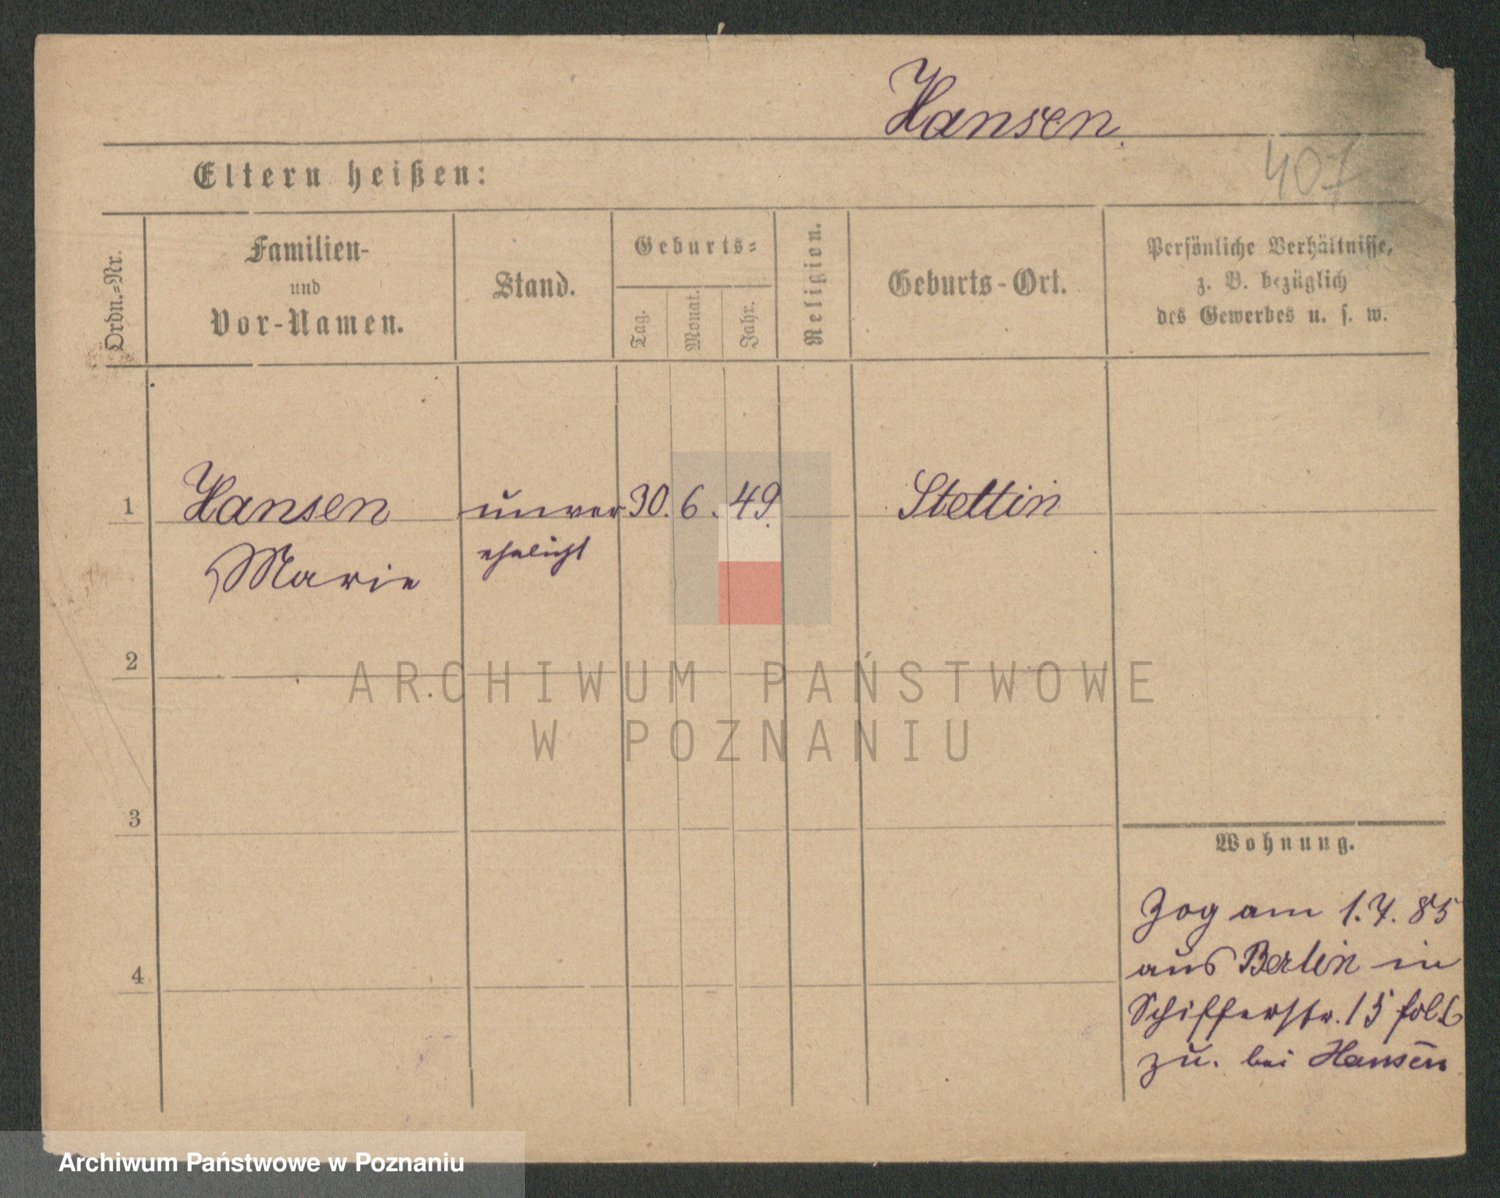 Hansen.
407
Eltern heißen:
Ordn.-Nr.
Familien-
und
Vor-Namen.
Stand.
Geburts-
Tag.
Monat.
Jahr.
Religion.
Geburts-Ort.
Persönliche Verhältnisse,
z. B. bezüglich
des Gewerbes u. s. w.
1 Hansen unver 30. 6. 49. Stettin
Marie ehelicht
2
ARCHIWUM PAŃSTWOWE
W POZNANIU
3
Wohnung.
Zog am 1.7.85
aus Berlin in
4
Schifferstr. 15 fol.
zu. bei Hansen
Archiwum Państwowe w Poznaniu